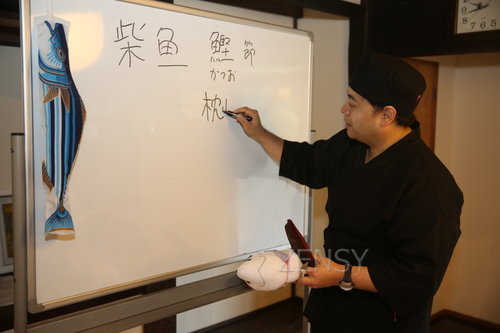 柴魚 鰹節
かつお
枕
ZENSY